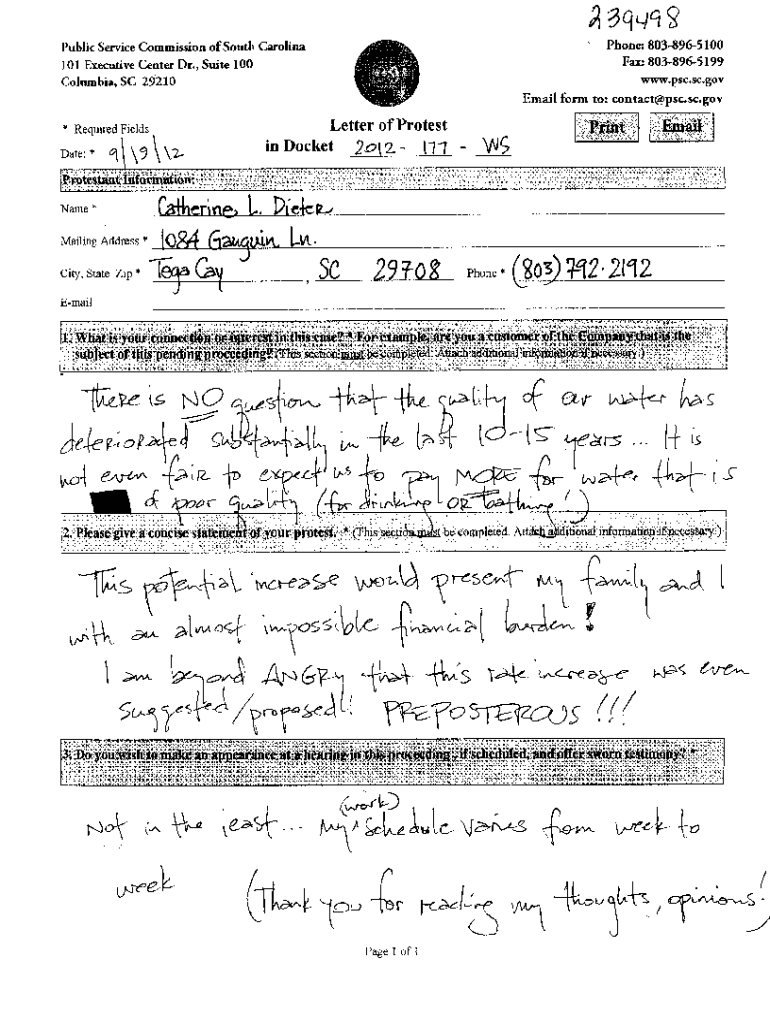 239498
Public Service Commission of South Carolina
101 Executive Center Dr., Suite 100
Columbia, SC 29210
Phone: 803-896-5100
Fax: 803-896-5199
www.psc.sc.gov
Email form to: contact@psc.sc.gov
* Required Fields
Letter of Protest
Print Email
Date: * 9/19/12
in Docket 2012 - 177 - WS
Protestant Information:
Name * Catherine L. Dieter
Mailing Address * 1084 Gauguin Ln.
City, State Zip * Tega Cay , SC 29708 Phone * (803) 792.2192
E-mail
1. What is your connection or interest in this case? * For example, are you a customer of the Company that is the
subject of this pending proceeding? (This section must be completed. Attach additional information if necessary.)
There is NO question that the quality of our water has
deteriorated substantially in the last 10-15 years... It is
not even fair to expect us to pay MORE for water that is
of poor quality (for drinking OR bathing!)
2. Please give a concise statement of your protest. * (This section must be completed. Attach additional information if necessary.)
This potential increase would present my family and I
with an almost impossible financial burden!
I am beyond ANGRY that this rate increase was even
suggested/proposed!! PREPOSTEROUS !!!
3. Do you wish to make an appearance at a hearing in this proceeding, if scheduled, and offer sworn testimony? *
(work)
Not in the least... My ^ Schedule varies from week to
week (Thank you for reading my thoughts, opinions!
Page 1 of 1